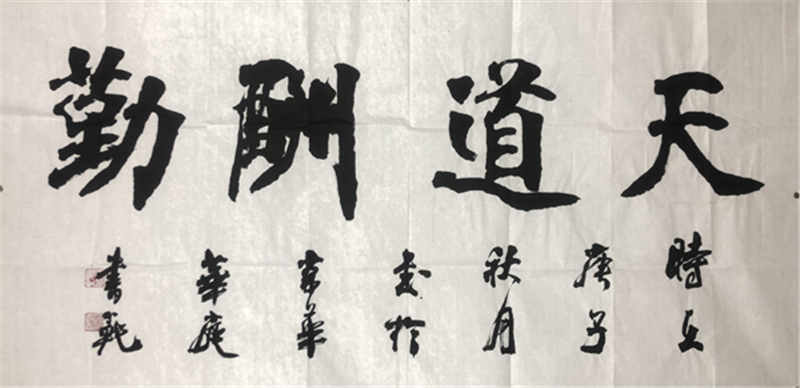 天道酬勤
時在
庚子
秋月
書於
京華
華庭
書